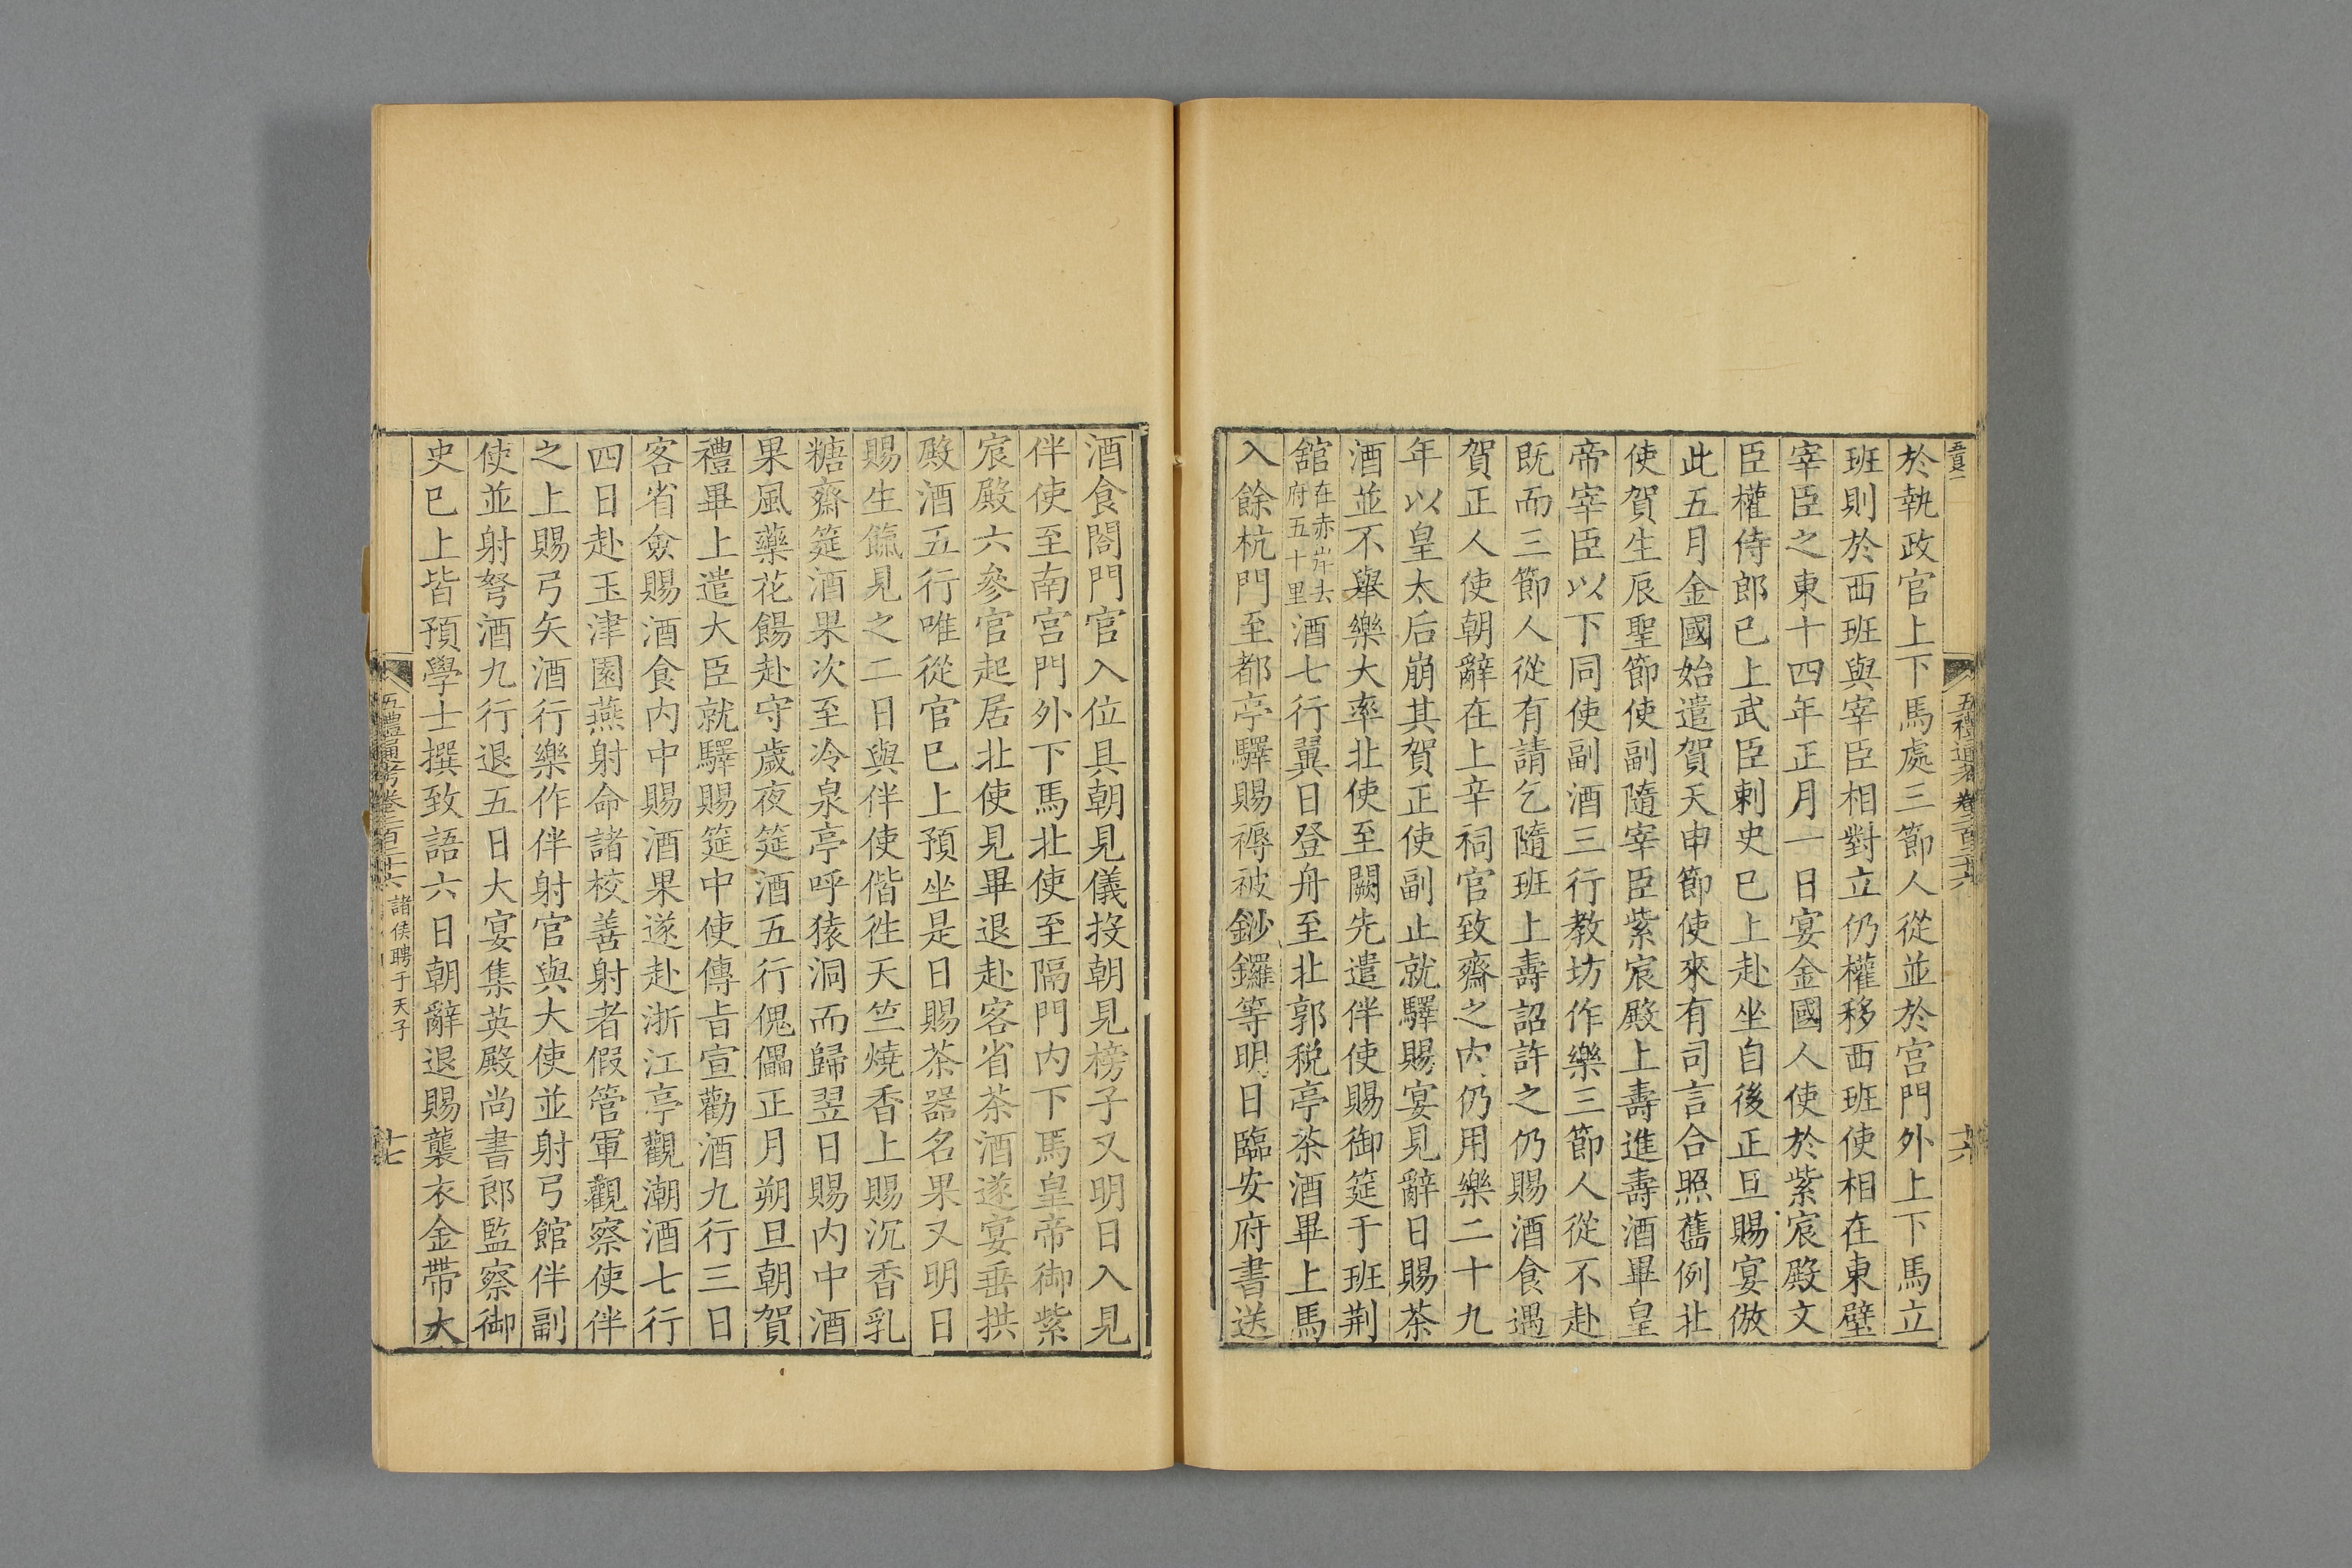 於執政官上下馬處三節人從並於宫門外上下馬立
班則於西班與宰臣相對立仍權移西班使相在東壁
宰臣之東十四年正月一日宴金國人使於紫宸殿文
臣權侍郎已上武臣刺史已上赴坐自後正旦賜宴倣
此五月金國始遣賀天申節使來有司言合照舊例北
使賀生辰聖節使副隨宰臣紫宸殿上壽進壽酒畢皇
帝宰臣以下同使副酒三行教坊作樂三節人從不赴
既而三節人從有請乞隨班上壽詔許之仍賜酒食遇
賀正人使朝辭在上辛祠官致齋之内仍用樂二十九
年以皇太后崩其賀正使副止就驛賜宴見辭日賜茶
酒並不舉樂大率北使至闕先遣伴使賜御筵于班荆
舘在赤岸去府五十里酒七行翼日登舟至北郭税亭茶酒畢上馬
入餘杭門至都亭驛賜褥被鈔鑼等明日臨安府書送
酒食閤門官入位具朝見儀投朝見榜子又明日入見
伴使至南宫門外下馬北使至隔門内下馬皇帝御紫
宸殿六參官起居北使見畢退赴客省茶酒遂宴垂拱
殿酒五行唯從官已上預坐是日賜茶器名果又明日
賜生餼見之二日與伴使偕徃天竺燒香上賜沉香乳
糖齋筵酒果次至冷泉亭呼猿洞而歸翌日賜内中酒
果風藥花餳赴守歲夜筵酒五行傀儡正月朔旦朝賀
禮畢上遣大臣就驛賜筵中使傳旨宣勸酒九行三日
客省僉賜酒食内中賜酒果遂赴浙江亭觀潮酒七行
四日赴玉津園燕射命諸校善射者假管軍觀察使伴
之上賜弓矢酒行樂作伴射官與大使並射弓館伴副
使並射弩酒九行退五日大宴集英殿尚書郎監察御
史已上皆預學士撰致語六日朝辭退賜襲衣金帶大
五禮通考卷二百二十六
十六
五禮通考卷二百二十六 諸侯聘于天子
十七